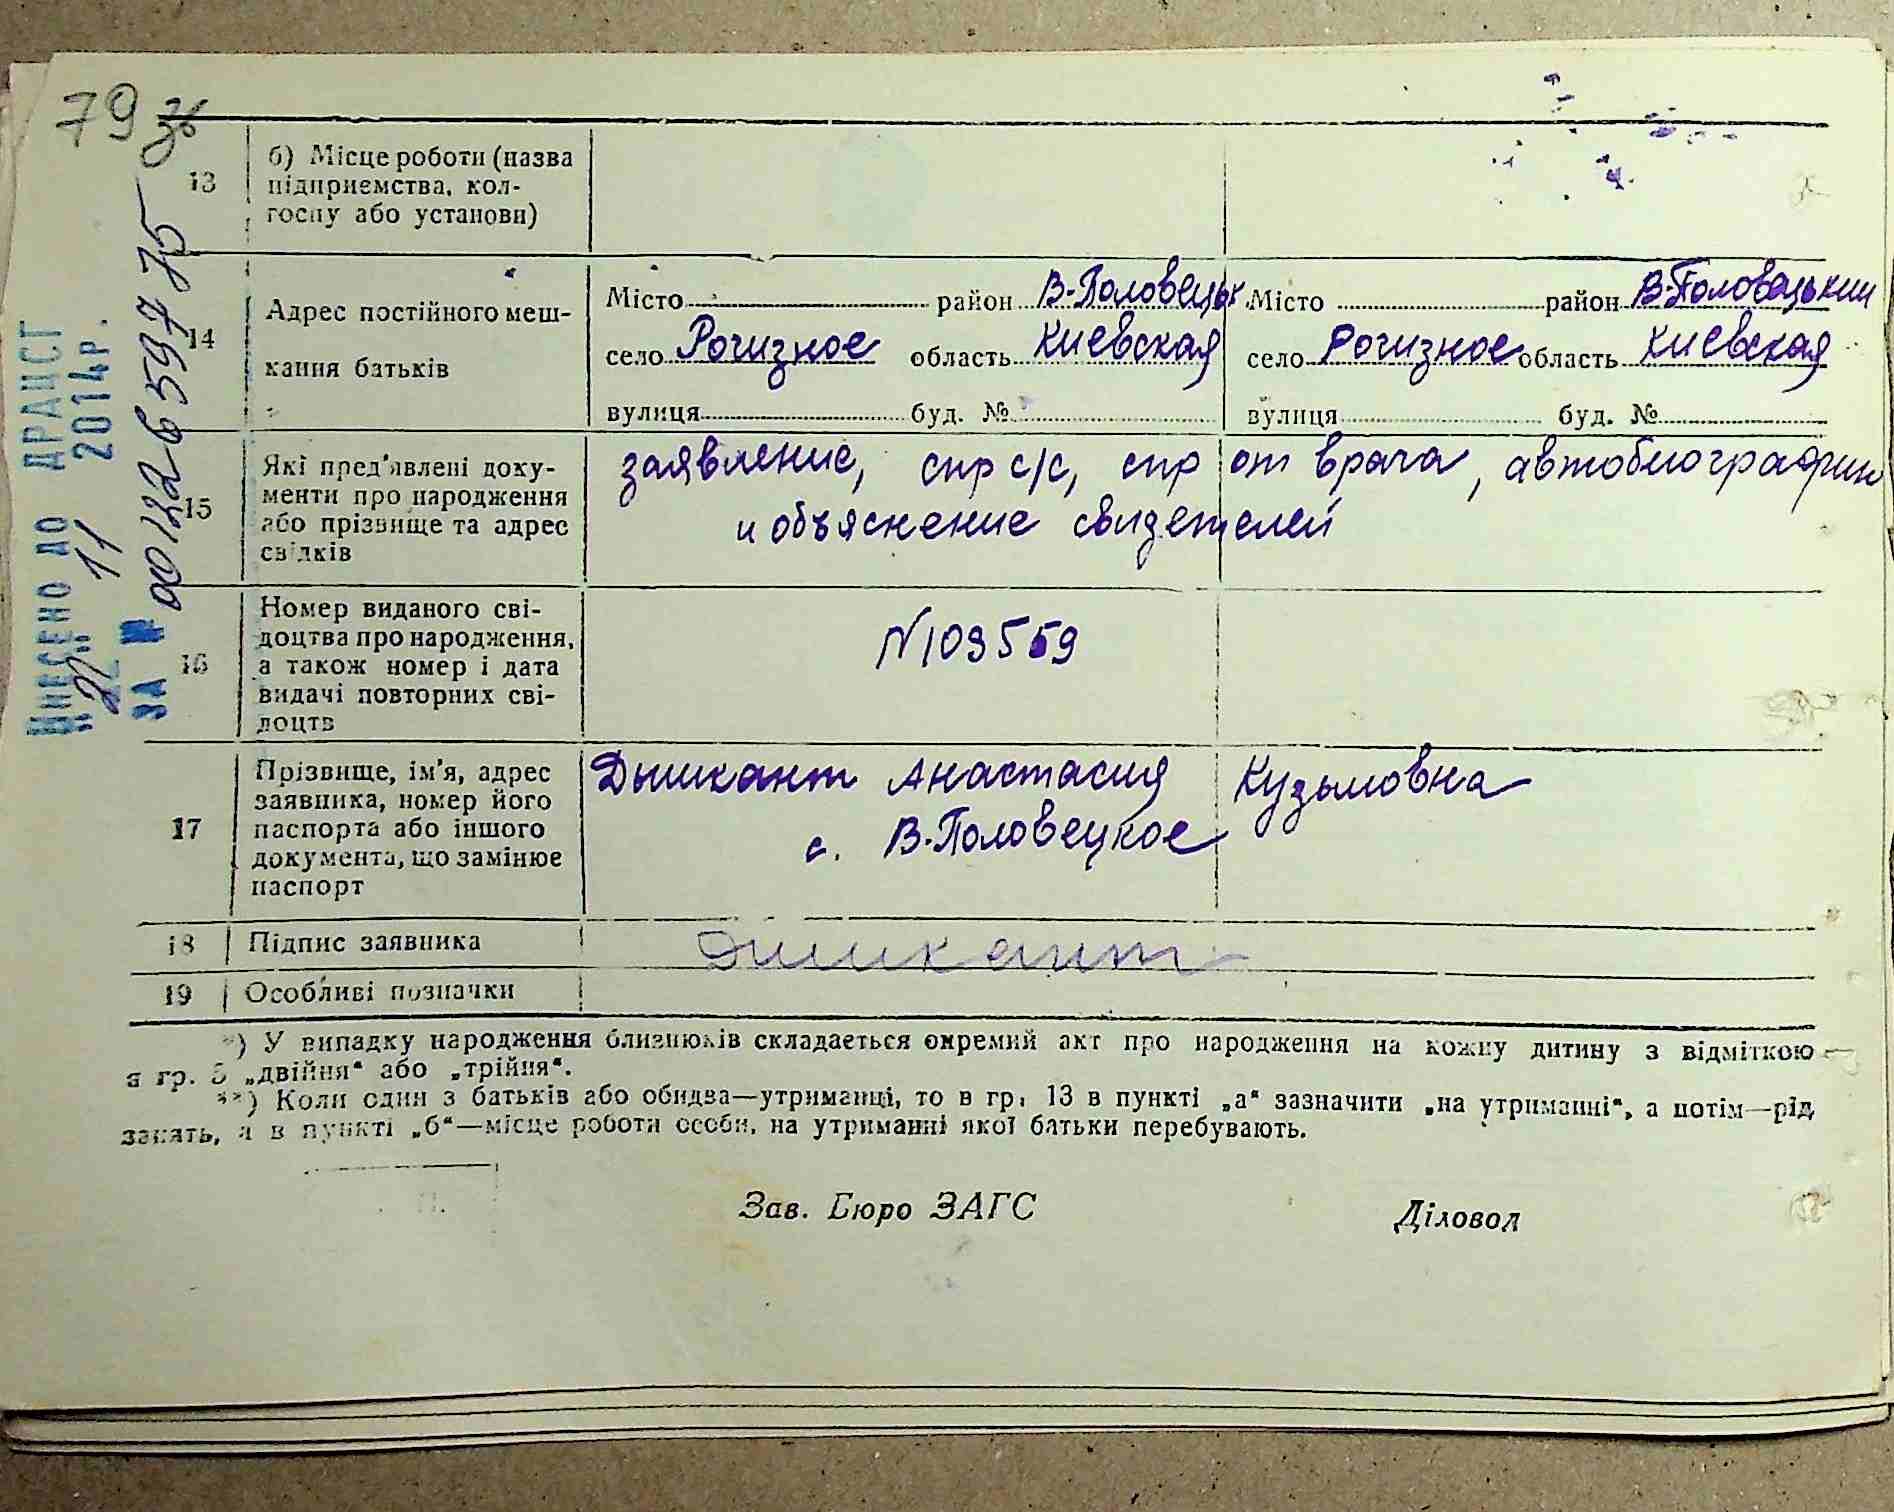 79 зв
ВНЕСЕНО ДО ДРАЦСГ
"22" 11 2014р.
ЗА № 00122659775
13
б) Місце роботи (назва
підприємства, кол-
госпу або установи)
14
Адрес постійного меш-
кання батьків
Місто район В-Половецьк. Місто район В-Половецький
село Рогизное область Киевская село Рогизное область Киевская
вулиця буд. № вулиця буд. №
15
Які пред'явлені доку-
менти про народження
або прізвище та адрес
свідків
заявление, спр с/с, спр от врача, автобиографии
и объяснение свидетелей
16
Номер виданого сві-
доцтва про народження,
а також номер і дата
видачі повторних сві-
доцтв
№109559
17
Прізвище, ім'я, адрес
заявника, номер його
паспорта або іншого
документа, що замінює
паспорт
Дышкант Анастасия Кузьмовна
с. В-Половецкое
18 Підпис заявника Дишкант
19 Особливі позначки
*) У випадку народження близнюків складається окремий акт про народження на кожну дитину з відміткою
в гр. 5 „двійня“ або „трійня“.
**) Коли один з батьків або обидва—утриманці, то в гр. 13 в пункті „а“ зазначити „на утриманні“, а потім—рід
занять, а в пункті „б“—місце роботи особи, на утриманні якої батьки перебувають.
Зав. Бюро ЗАГС Діловод